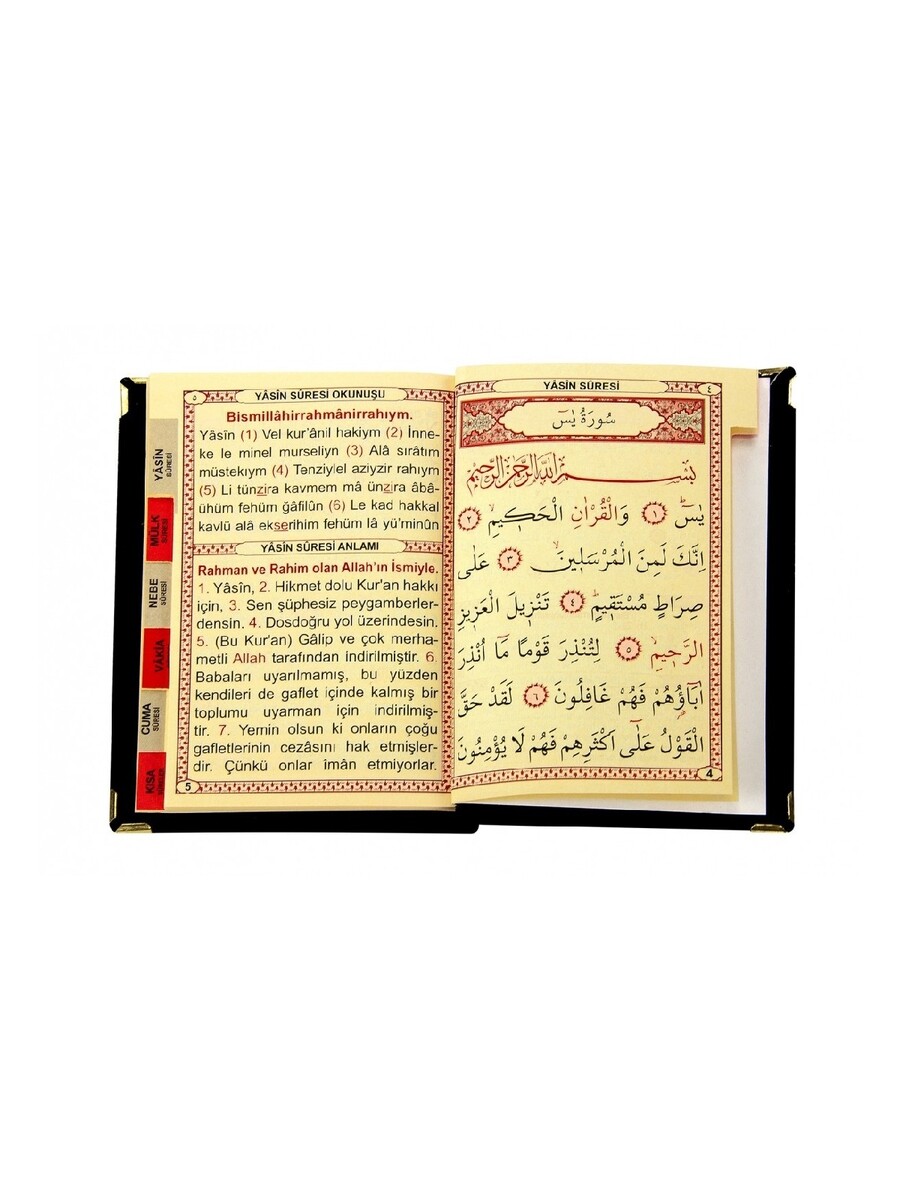 YÂSİN SÛRESİ
٤
سُورَةُ يٰسٓ
بِسْمِ اللّٰهِ الرَّحْمٰنِ الرَّحٖيمِ
يٰسٓ ۚ ﴿١﴾ وَالْقُرْاٰنِ الْحَكٖيمِۙ ﴿٢﴾
اِنَّكَ لَمِنَ الْمُرْسَلٖينَۙ ﴿٣﴾ عَلٰى
صِرَاطٍ مُسْتَقٖيمٍۜ ﴿٤﴾ تَنْزٖيلَ الْعَزٖيزِ
الرَّحٖيمِۙ ﴿٥﴾ لِتُنْذِرَ قَوْمًا مَٓا اُنْذِرَ
اٰبَٓاؤُ۬هُمْ فَهُمْ غَافِلُونَ ﴿٦﴾ لَقَدْ حَقَّ
الْقَوْلُ عَلٰٓى اَكْثَرِهِمْ فَهُمْ لَا يُؤْمِنُونَ
4
٥
YÂSİN SÛRESİ OKUNUŞU
Bismillâhirrahmânirrahıym.
Yâsîn (1) Vel kur'ânil hakiym (2) İnne-
ke le minel murseliyn (3) Alâ sırâtım
müstekıym (4) Tenziylel aziyzir rahıym
(5) Li tünzira kavmem mâ ünzira âbâ-
ühüm fehüm ğafilûn (6) Le kad hakkal
kavlü alâ ekserihim fehüm lâ yü'minûn
YÂSİN SÛRESİ ANLAMI
Rahman ve Rahim olan Allah'ın İsmiyle.
1. Yâsîn, 2. Hikmet dolu Kur'an hakkı
için, 3. Sen şüphesiz peygamberler-
densin. 4. Dosdoğru yol üzerindesin.
5. (Bu Kur'an) Gâlip ve çok merha-
metli Allah tarafından indirilmiştir. 6.
Babaları uyarılmamış, bu yüzden
kendileri de gaflet içinde kalmış bir
toplumu uyarman için indirilmiş-
tir. 7. Yemin olsun ki onların çoğu
gafletlerinin cezâsını hak etmişler-
dir. Çünkü onlar imân etmiyorlar.
5
YÂSİN
SÛRESİ
MÜLK
SÛRESİ
NEBE
SÛRESİ
VÂKIA
CUMA
SÛRESİ
KISA